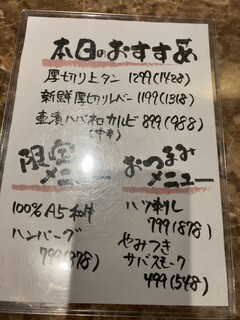 本日のおすすめ
厚切り上タン 1299(1428)
新鮮厚切りレバー 1199(1318)
壺漬ハバネロカルビ 899(988)
(中辛)
限定
メニュー
100% A5和牛
ハンバーグ
799(878)
おつまみ
メニュー
ハツ刺し
799(878)
やみつき
サバスモーク
499(548)